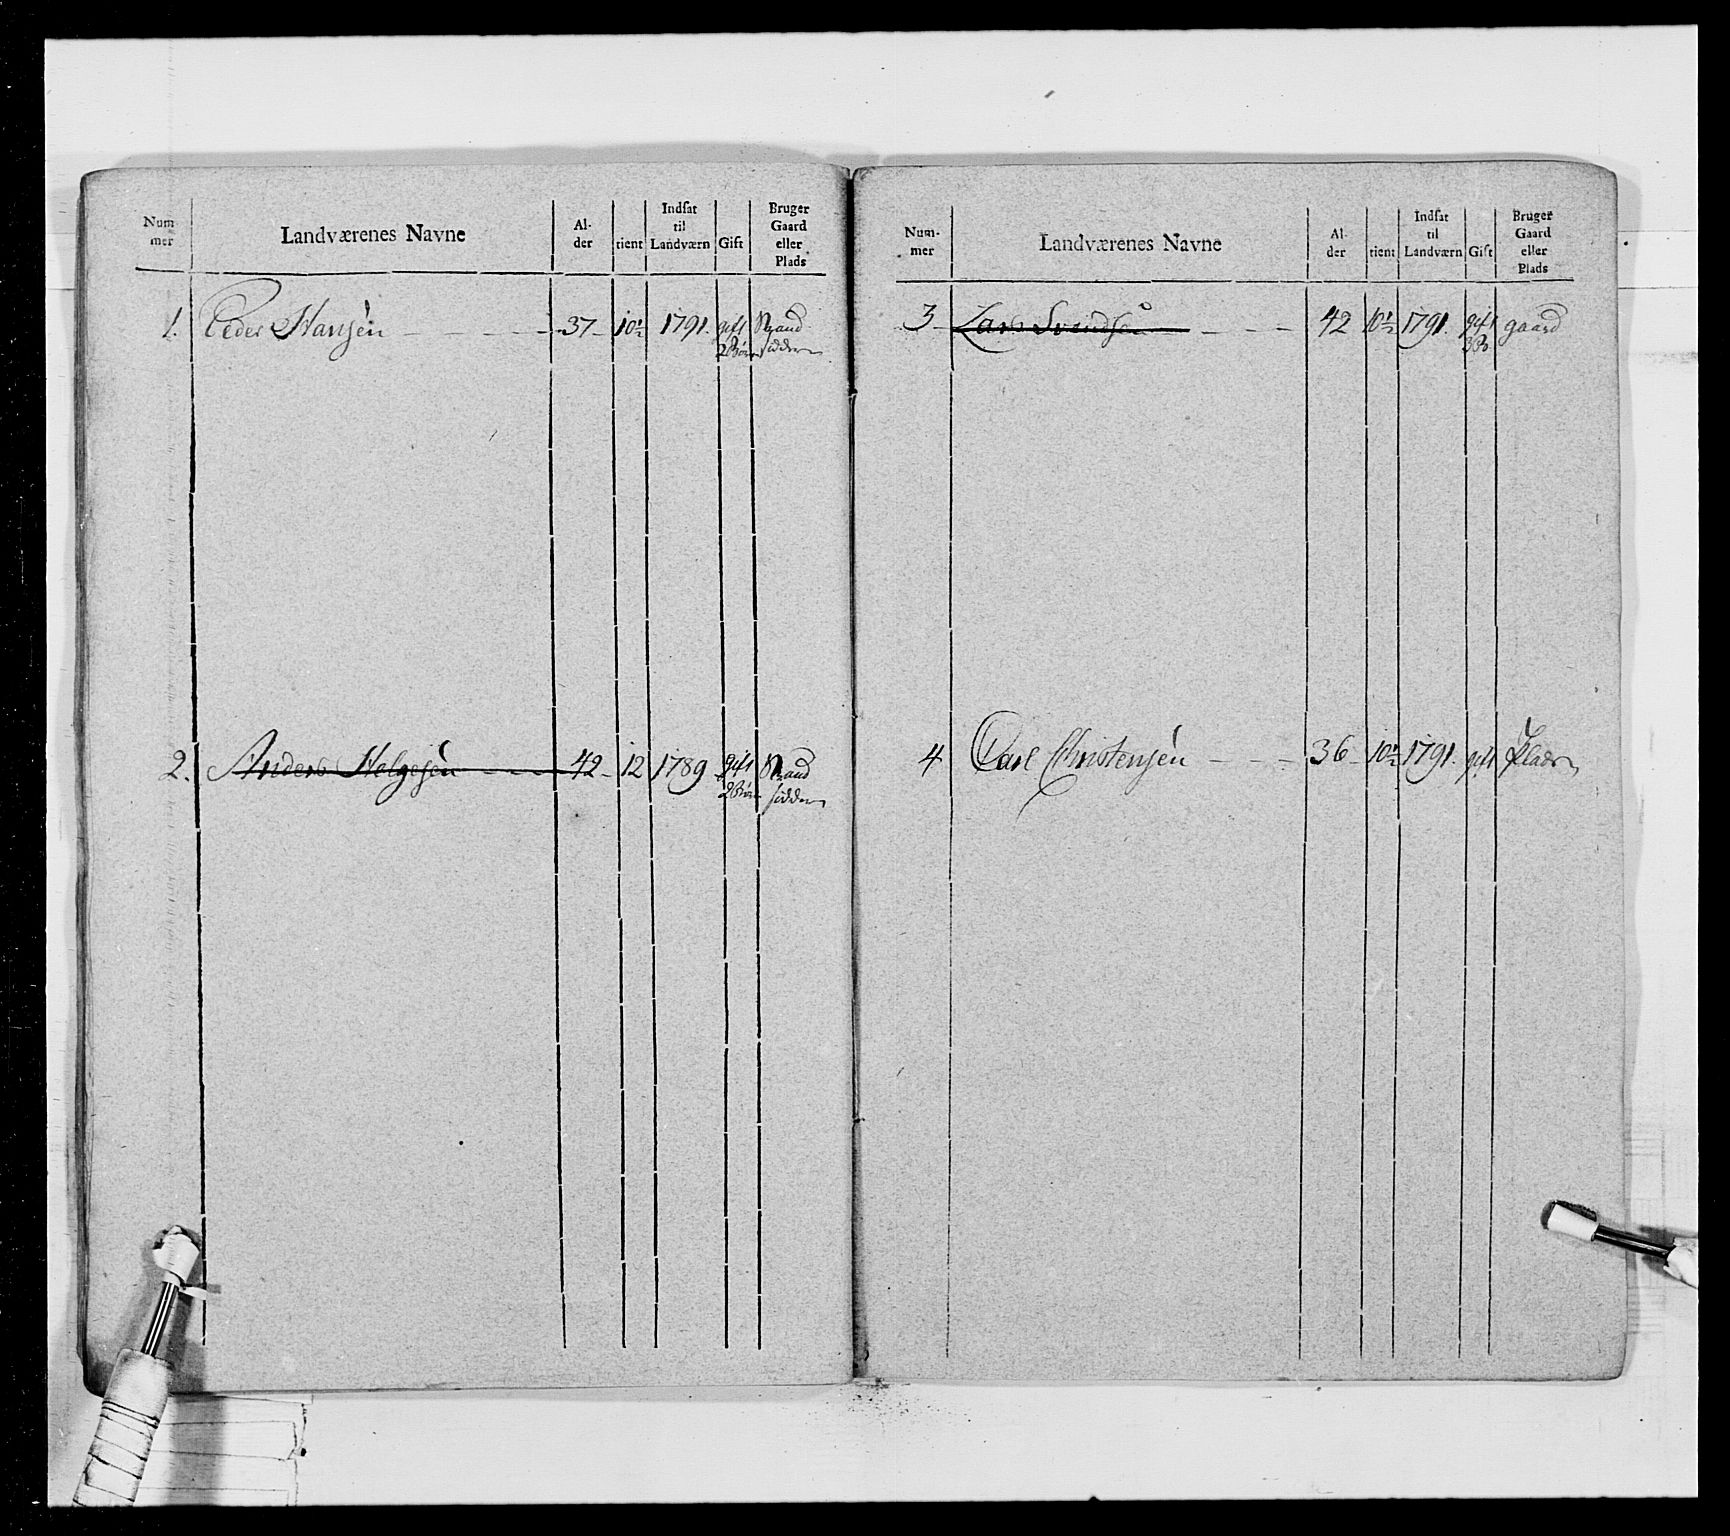 Num-
mer
Landværenes Navne
Al-
der
tient
Indsat
til
Landværn
Gift
Bruger
Gaard
eller
Plads
1. Peder Hansen 37 10½ 1791. gift Strand
2 Børn sidder
2. Anders Helgesen 42 12 1789 gift Strand
2 Børn sidder
Num-
mer
Landværenes Navne
Al-
der
tient
Indsat
til
Landværn
Gift
Bruger
Gaard
eller
Plads
3 Lars Svendsen 42 10½ 1791. gift gaard
3 B
4 Carl Christensen 36 10½ 1791. gift Plads